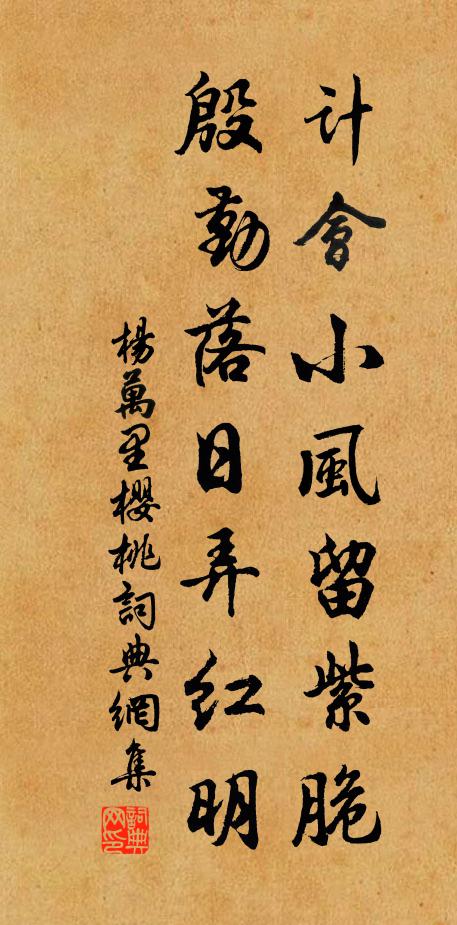 計會小風留紫脆
殷勤落日弄红明
楊萬里櫻桃詞典網集
詞典网印